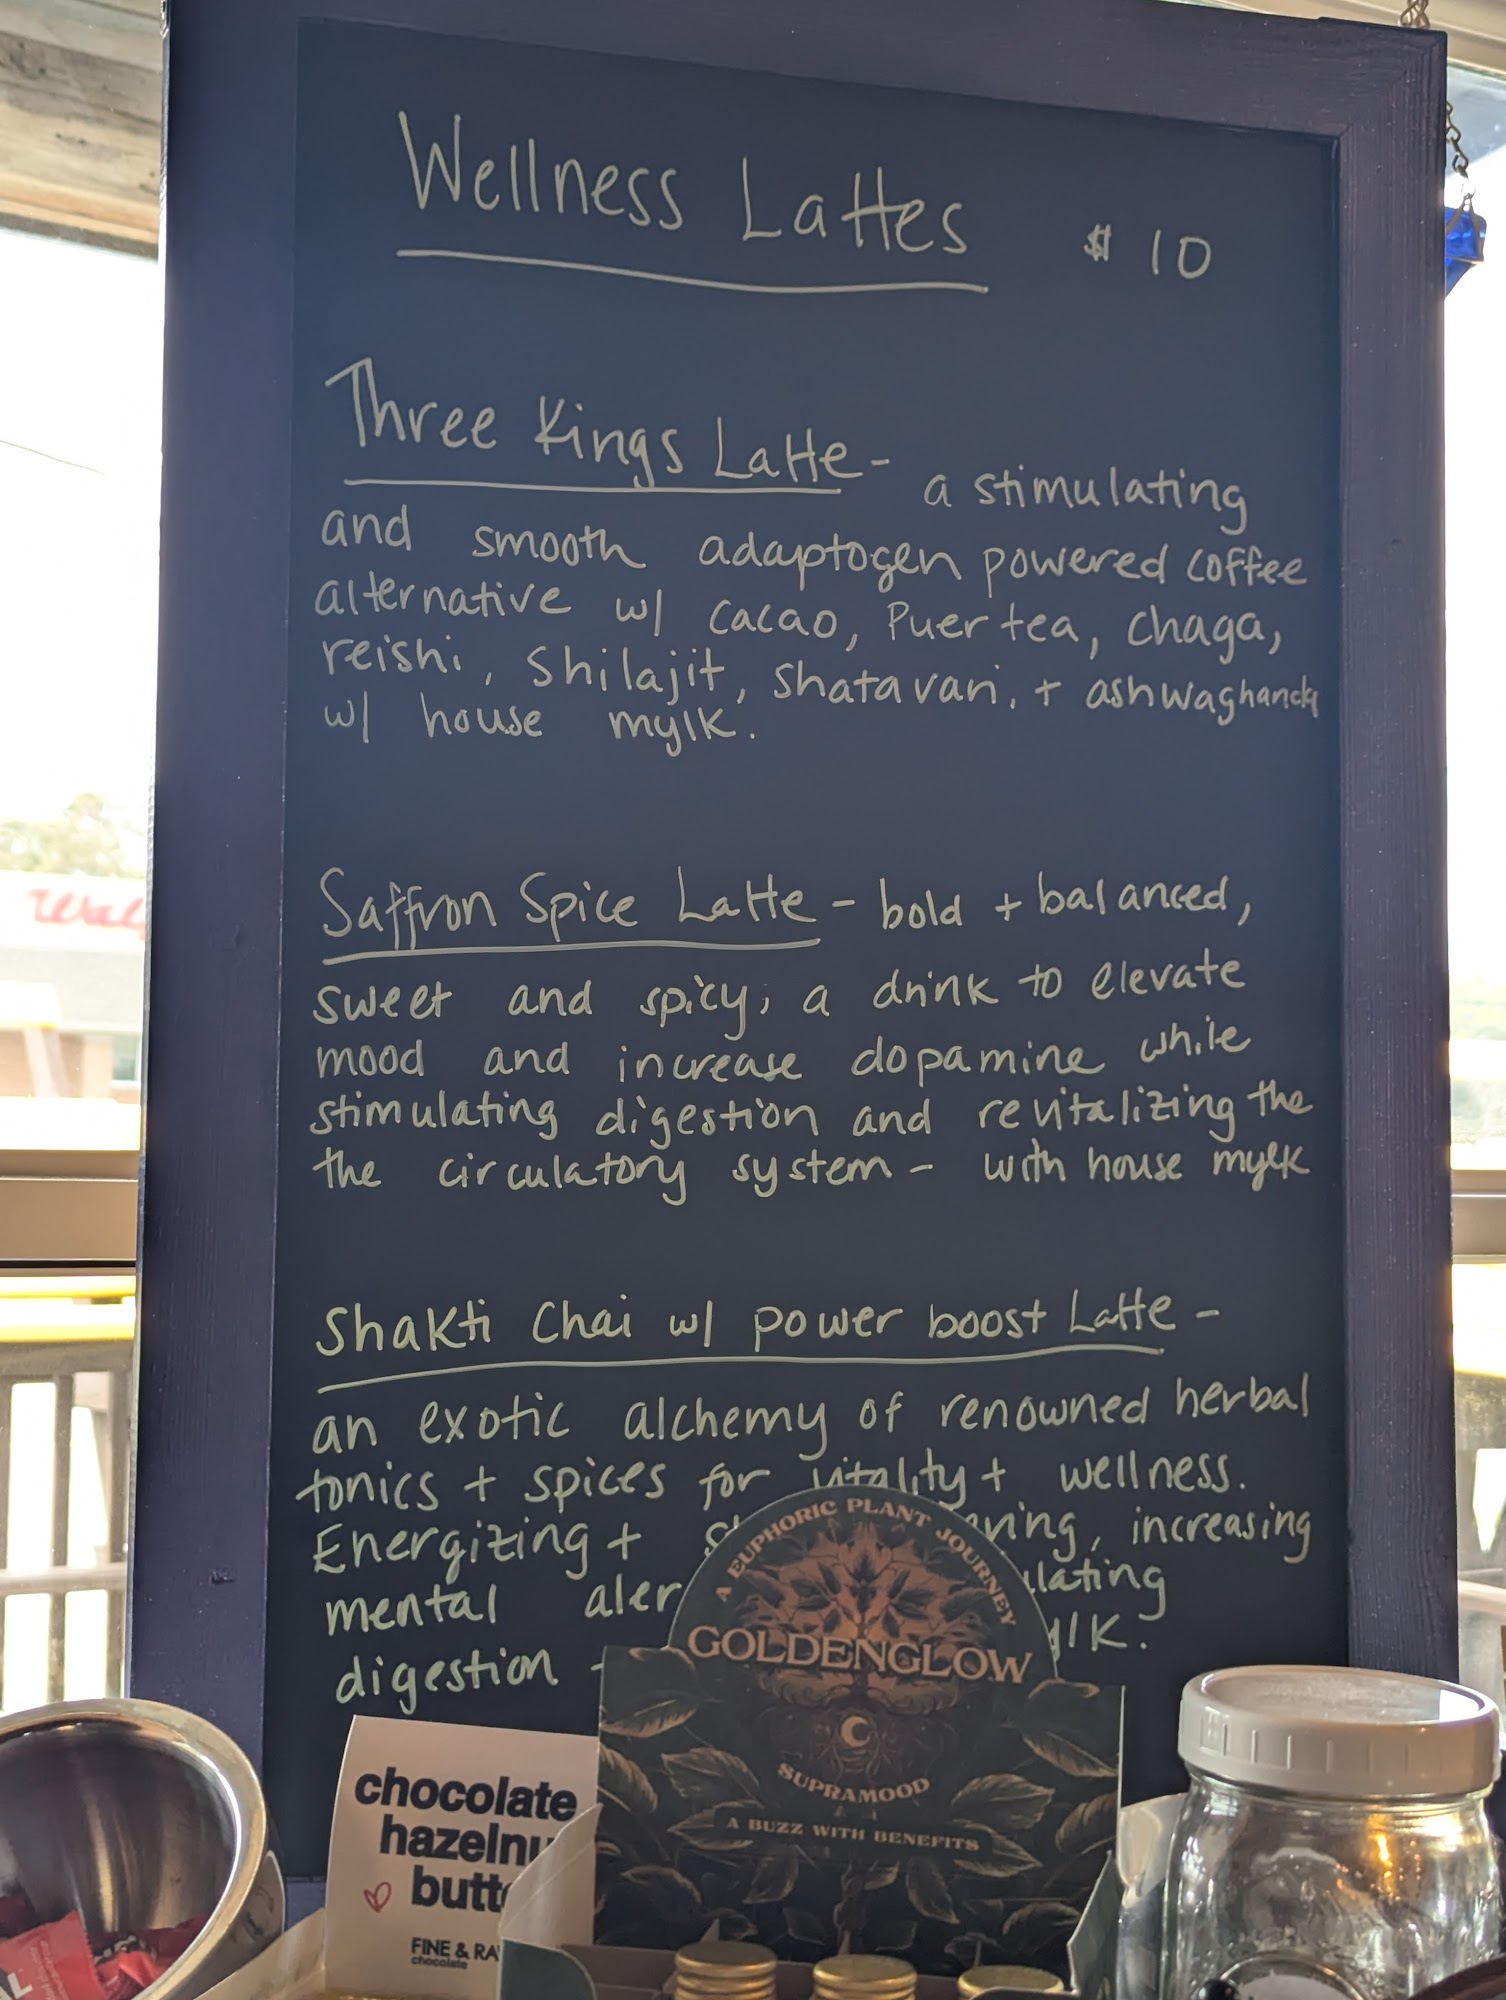 Wellness Lattes $10
Three Kings Latte - a stimulating
and smooth adaptogen powered coffee
alternative w/ cacao, Puer tea, chaga,
reishi, Shilajit, Shatavari, + ashwaghanda
w/ house mylk.
Saffron Spice Latte - bold + balanced,
sweet and spicy; a drink to elevate
mood and increase dopamine while
stimulating digestion and revitalizing the
the circulatory system - with house mylk
Shakti Chai w/ power boost Latte -
an exotic alchemy of renowned herbal
tonics + spices for vitality + wellness.
Energizing + increasing
mental
digestion -
A EUPHORIC PLANT JOURNEY
GOLDENGLOW
SUPRAMOOD
A BUZZ WITH BENEFITS
chocolate
hazelnu
butt
FINE & RA
chocolate